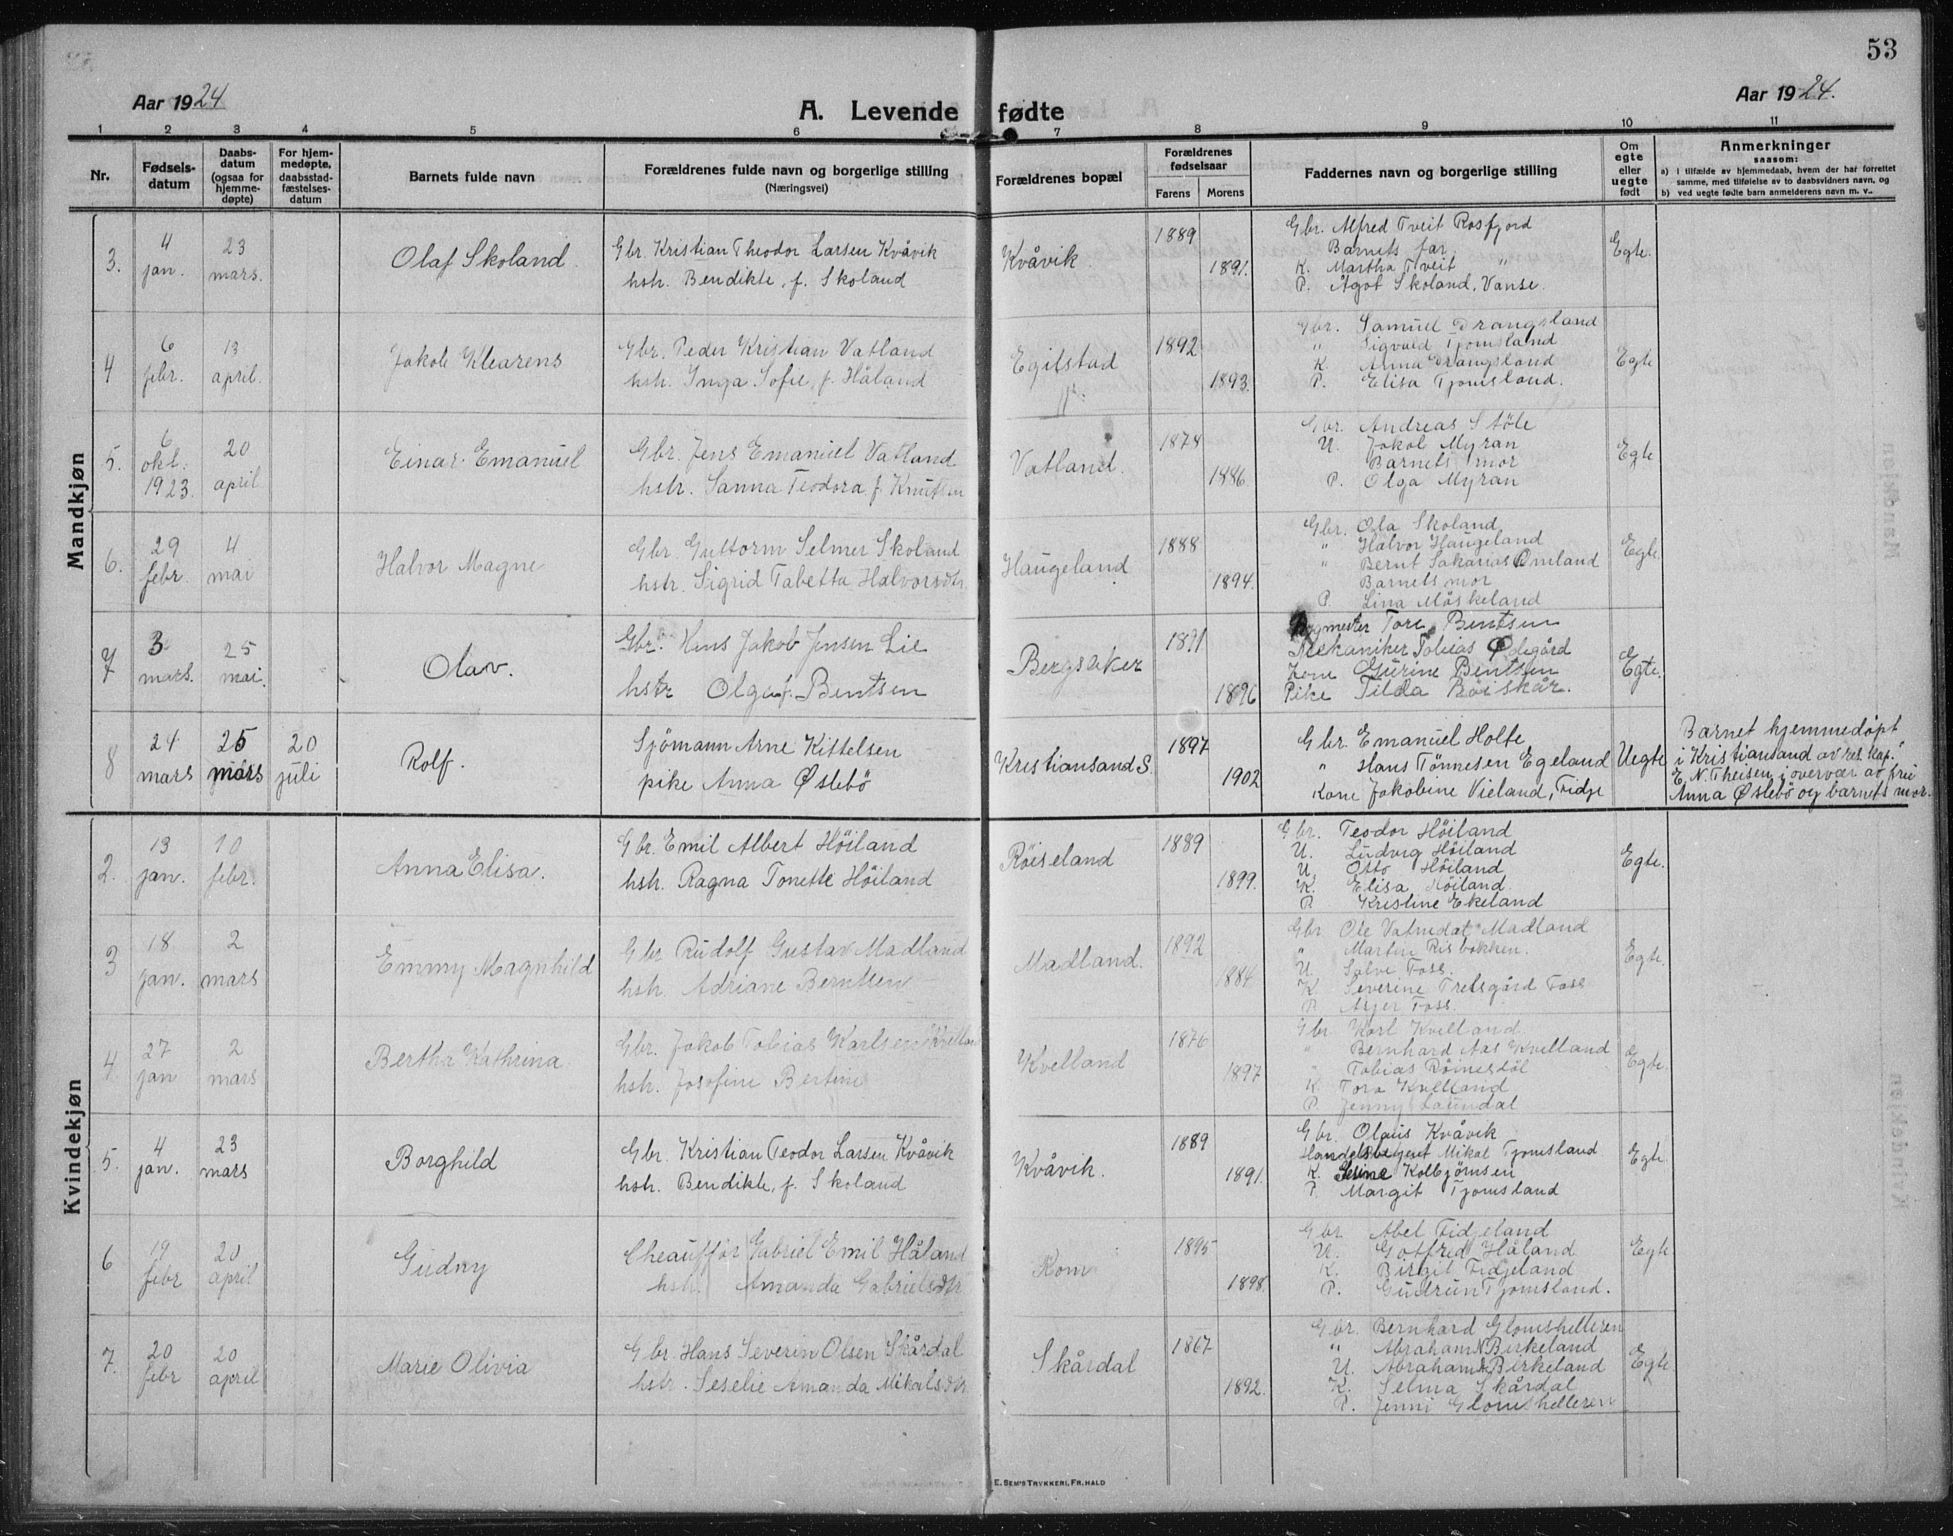 53
Aar 1924
A. Levende fødte
Aar 1924.
1 2 3 4 5 6 7 8 9 10 11
Nr.
Fødsels-
datum
Daabs-
datum
(ogsaa for
hjemme-
døpte)
For hjem-
medøpte,
daabsstad-
fæstelses-
datum
Barnets fulde navn
Forældrenes fulde navn og borgerlige stilling
(Næringsvei)
Forældrenes bopæl
Forældrenes
fødselsaar
Farens Morens
Faddernes navn og borgerlige stilling
Om
egte
eller
uegte
født
Anmerkninger
saasom:
a) i tilfælde av hjemmedaab, hvem der har forrettet
samme, med tilføielse av to daabsvidners navn, og
b) ved uegte fødte barn anmelderens navn m. v.
Mandkjøn
3.
4
jan.
23
mars.
Olaf Skoland
Gbr. Kristian Theodor Larsen Kvåvik
hstr. Bendikte, f. Skoland
Kvåvik
1889
1891.
Gbr. Alfred Tveit Rosfjord
Barnets far
K. Martha Tveit "
P. Ågot Skoland, Vanse.
Egte.
4
6
febr.
13
april.
Jakob Klearens
Gbr. Peder Kristian Vatland
hstr. Inga Sofie, f. Håland
Egilstad
1892
1893.
Gbr. Samuel Drangsland
" Sigvald Tjomsland
K. Anna Drangsland
P. Elisa Tjomsland.
Egte
5.
6
okt.
1923.
20
april
Einar Emanuel
Gbr. Jens Emanuel Vatland
hstr. Sanna Teodora f. Knutsen
Vatland.
1874
1886
Gbr. Andreas Støle
U. Jakob Myran
Barnets mor
P. Olga Myran
Egte
6.
29
febr.
4
mai
Halvor Magne
Gbr. Guttorm Selmer Skoland
hstr. Sigrid Tabetta Halvorsdtr.
Haugeland
1888
1894.
Gbr. Ola Skoland
" Halvor Haugeland
" Bernt Sakarias Omland
Barnets mor
P. Lina Møskeland
Egte.
7
3
mars.
25
mai.
Olav.
Gbr. Hans Jakob Jensen Lie
hstr Olga f. Bentsen
Bergsaker
1871
1896
Tore Bentsen
Mekaniker Tobias Ødegård
Kone Gurine Bentsen
Pike Tilda Børskår.
Egte.
8
24
mars
25
mars
20
juli
Rolf.
Sjömann Arne Kittelsen
pike Anna Øslebö
Kristiansand S.
1897
1902
Gbr. Emanuel Holte
" Hans Tönnesen Egeland
Kone Jakobine Vieland, Fidje
Uegte
Barnet hjemmedøpt
i Kristiansand av res. kap.
E. N. Theisen i overvær av fru
Anna Øslebö og barnets mor.
Kvindekjøn
2.
13
jan.
10
febr.
Anna Elisa.
Gbr. Emil Albert Höiland
hstr. Ragna Tonette Höiland
Röiseland
1889
1899.
Gbr. Teodor Höiland
U. Ludvig Höiland
U. Otto Höiland
K. Elisa Höiland.
P. Kristine Ekeland
Egte.
3
18
jan.
2
mars
Emmy Magnhild
Gbr. Rudolf Gustav Madland
hstr. Adriane Berntsen
Madland.
1892
1884
Gbr. Ole Vatnedal Madland
" Martin Risbakken.
U. Salve Foss.
K. Severine Tretsgård Foss
P. Asjer Foss.
Egte.
4.
27
jan
2
mars
Bertha Kathrina
Gbr. Jakob Tobias Karlsen Kvelland
hstr. Josefine Bertine
Kvelland
1876
1897
Gbr Karl Kvelland
" Bernhard Aas Kvelland
" Tobias Rømesdøl
K. Tora Kvelland
P. Jenny Laundal
Egte.
5.
4
jan.
23
mars
Borghild
Gbr. Kristian Teodor Larsen Kvåvik
hstr. Bendikte, f. Skoland
Kvåvik.
1889
1891.
Gbr. Olaus Kvåvik
Handelsbetjent Mikal Tjomsland
K. Seline Kolbjörnsen
P. Margit Tjomsland
Egte.
6
19
febr
20
april
Gudny
Chauffør Gabriel Emil Håland
hstr. Amanda Gabrielsdtr
Kom
1895
1898.
Gbr. Abel Fidjeland
U. Gotfred Håland
K. Birgit Fidjeland
P. Gudrun Tjomsland.
Egte
7.
20
febr
20
april
Marie Olivia
Gbr. Hans Severin Olsen Skårdal
hstr. Seselie Amanda Mikalsdtr.
Skårdal
1867
1892.
Gbr. Bernhard Glomshelleren
" Abraham N Birkeland
U. Abraham A Birkeland
K. Selma Skårdal
P. Jenni Glomshelleren
Egte
E. SEM'S TRYKKERI, FR. HALD